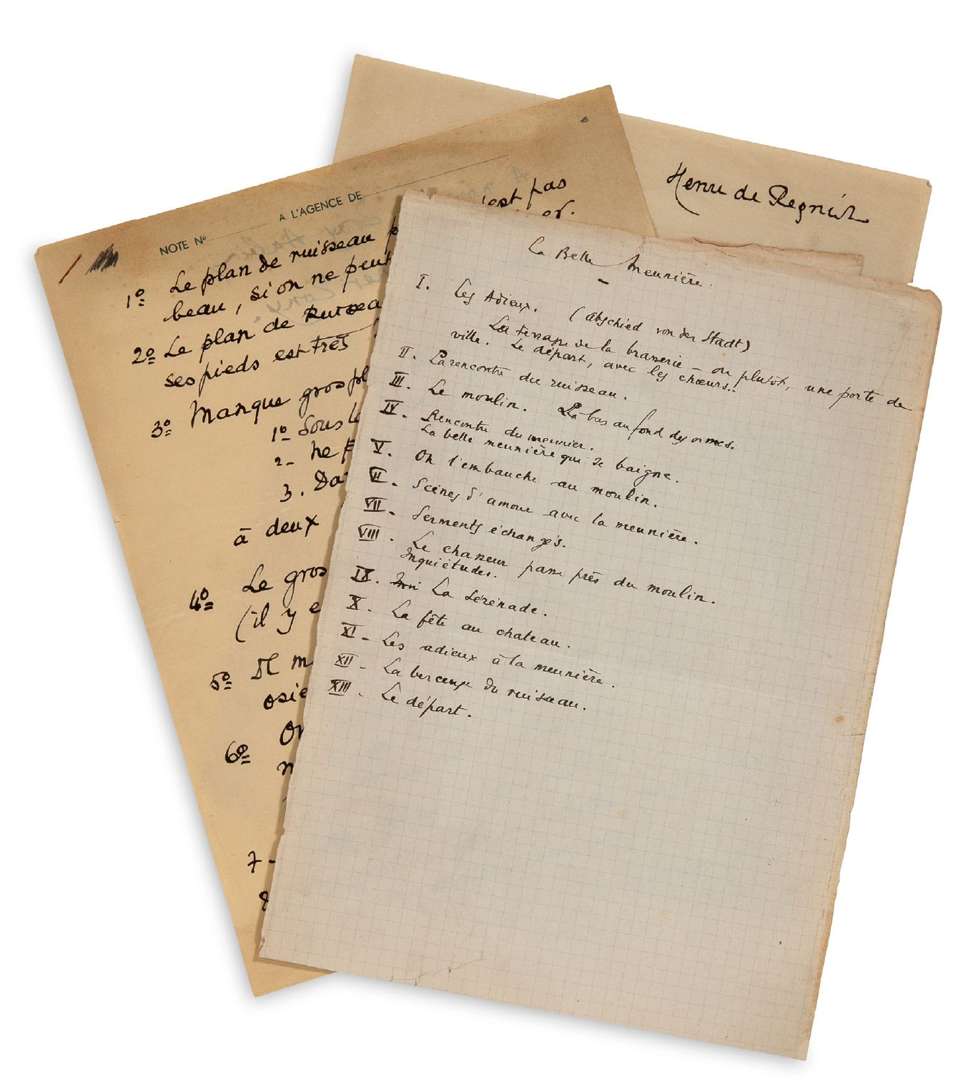 Henri de Regnier
NOTE N° A L'AGENCE DE
est pas
1º Le plan de ruisseau
beau, si on ne peut
2º Le plan de Ruisseau
ses pieds est très
3º Manque gros pl
1º Sous le
2 - ne p
3. Da
à deux
4º Le gros
(il y e
5º Il m
osie
6º On
n
7 -
8
La Belle Meunière.
I. Les Adieux. (Abschied von der Stadt)
La terrasse de la brasserie - ou plutôt, une porte de
ville. Le départ, avec les chœurs..
II. La rencontre du ruisseau.
III. Le moulin. Là bas au fond des ormes.
IV. Rencontre du meunier.
La belle meunière qui se baigne.
V. On l'embauche au moulin.
VI. Scènes d'amour avec la meunière.
VII. Serments échangés.
VIII. Le chasseur passe près du moulin.
Inquiétudes.
IX. La Sérénade.
X. La fête au chateau.
XI - Les adieux à la meunière.
XII - La berceuse du ruisseau.
XIII - Le départ.